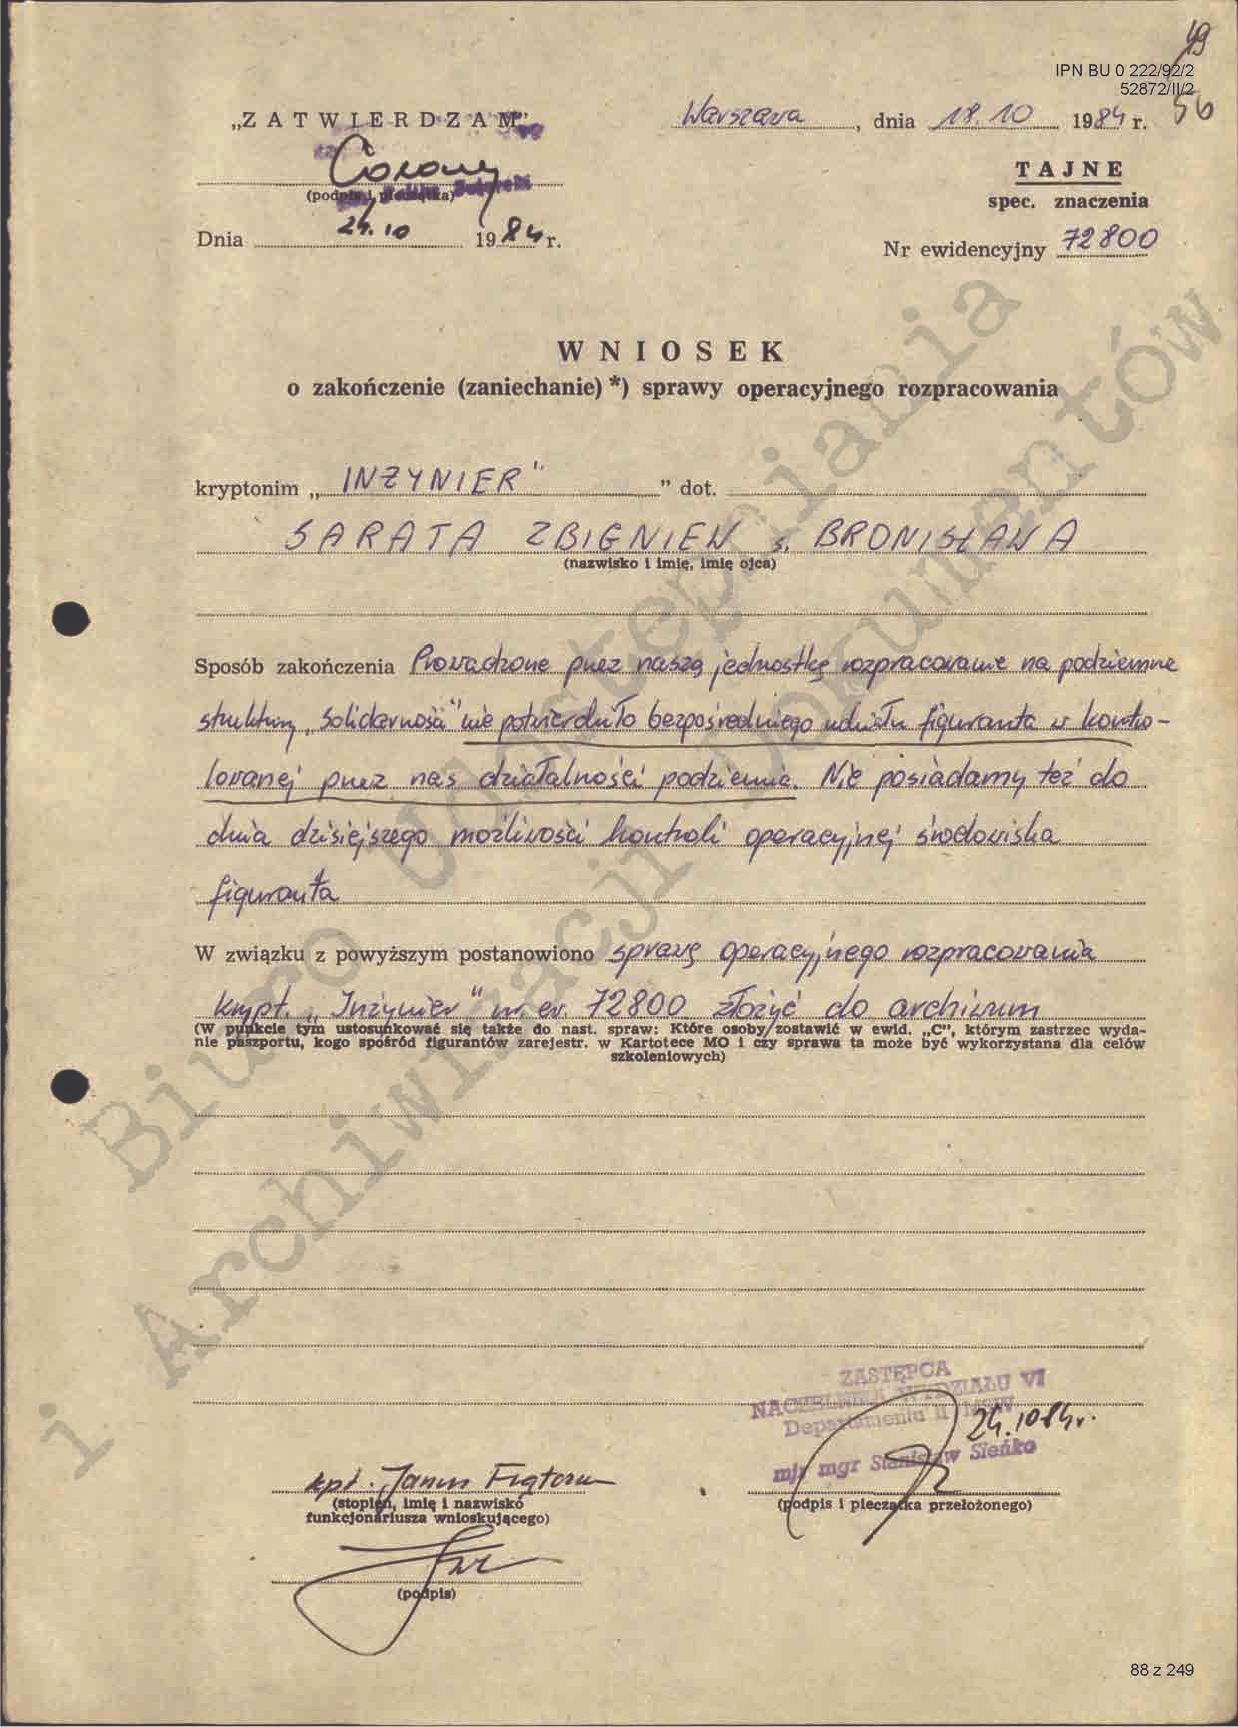 49
IPN BU 0 222/92/2
52872/II/2
56
„ZATWIERDZAM”
Warszawa, dnia 18.10 1984 r.
(podpis i pieczątka)
TAJNE
spec. znaczenia
Dnia 24.10 1984 r.
Nr ewidencyjny 72800
WNIOSEK
o zakończenie (zaniechanie) *) sprawy operacyjnego rozpracowania
kryptonim „INŻYNIER" ” dot.
SARATA ZBIGNIEW s. BRONISŁAWA
(nazwisko i imię, imię ojca)
Sposób zakończenia Prowadzone przez naszą jednostkę rozpracowanie na podziemne
struktury „Solidarności" nie potwierdziło bezpośredniego udziału figuranta w kontro-
lowanej przez nas działalności podziemia. Nie posiadamy też do
dnia dzisiejszego możliwości kontroli operacyjnej środowiska
figuranta
W związku z powyższym postanowiono sprawę operacyjnego rozpracowania
krypt. „Inżynier" nr. ew. 72800 złożyć do archiwum
(W punkcie tym ustosunkować się także do nast. spraw: Które osoby zostawić w ewid. „C", którym zastrzec wyda-
nie paszportu, kogo spośród figurantów zarejestr. w Kartotece MO i czy sprawa ta może być wykorzystana dla celów
szkoleniowych)
ZASTĘPCA
NACZELNIKA WYDZIAŁU VI
Departamentu II MSW
24.10.84r.
mjr mgr Stanisław Sieńko
kpt. Janusz
(stopień, imię i nazwisko
funkcjonariusza wnioskującego)
(podpis i pieczątka przełożonego)
(podpis)
Biuro Udostępniania
i Archiwizacji Dokumentów
88 z 249